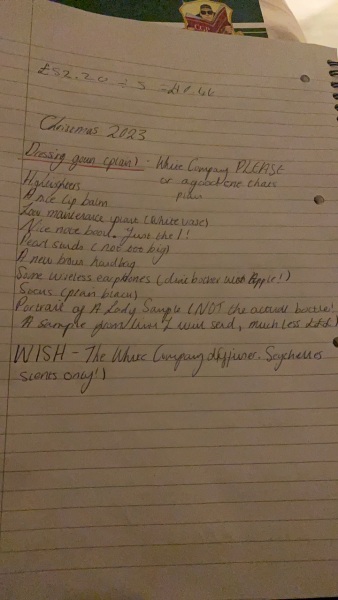 £52.20 ÷ 5 =
Christmas 2023
Dressing gown (plain) - White Company PLEASE
or a good one thats
plain
Highlighters
A nice lip balm
Low maintenance plant (white vase)
A nice note book. Just the 1!
Pearl studs (not too big)
A new brown handbag
Some wireless earphones (dont bother with Apple!)
Socks (plain black)
Portrait of A Lady Sample (NOT the actual bottle!
A sample from link I will send, much less)
WISH - The White Company diffuser. Seychelles
scents only!)